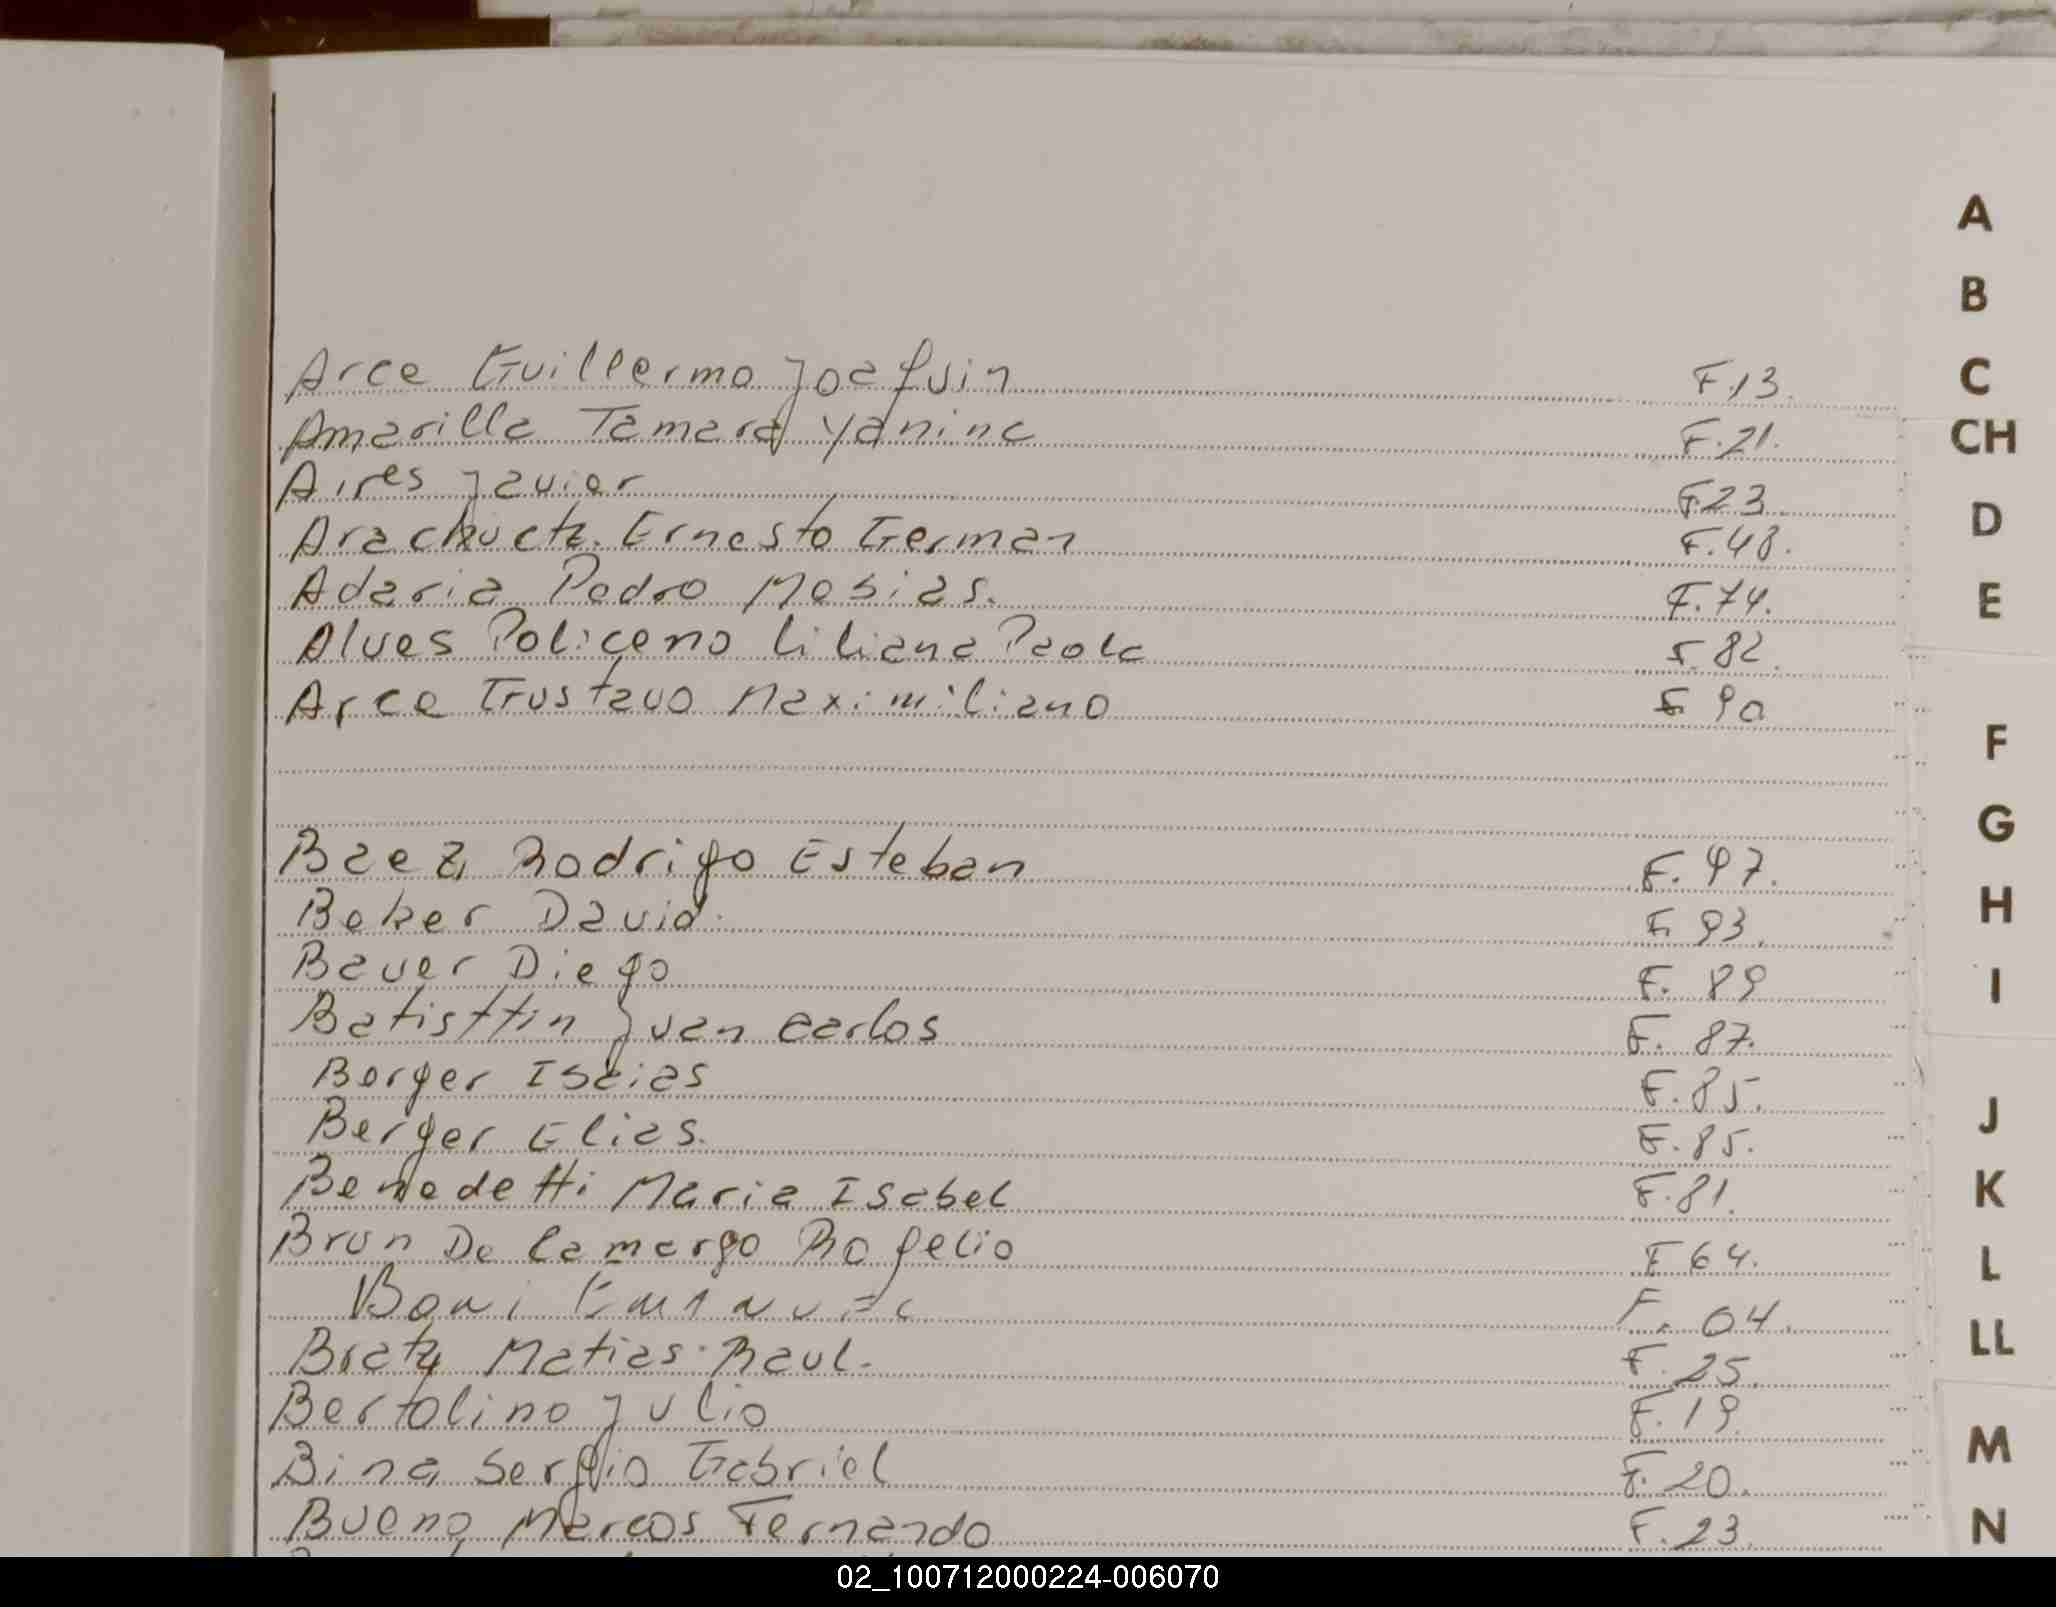 Arce Guillermo Joaquin F.13.
Amarilla Tamara Yanina F.21.
Aires Javier F.23.
Arachuctz. Ernesto German F.48.
Adaria Pedro Mesias. F.74.
Alves Policeno Liliana Paola F.82.
Arce Gustavo Maximiliano F 90
Baez Rodrigo Esteban F.97.
Beker David. F 93.
Bauer Diego F. 89
Batisttin Juan Carlos F. 87.
Berger Isaias F.85.
Berger Elias. F.85.
Benedetti Maria Isabel F.81.
Brun De Camargo Rogelio F 64.
Boni F. 04.
Bratz Matias Raul. F.25.
Bertolino Julio F.19.
Bina Sergio Gabriel F.20.
Bueno Marcos Fernando F.23.
A
B
C
CH
D
E
F
G
H
I
J
K
L
LL
M
N
02_100712000224-006070